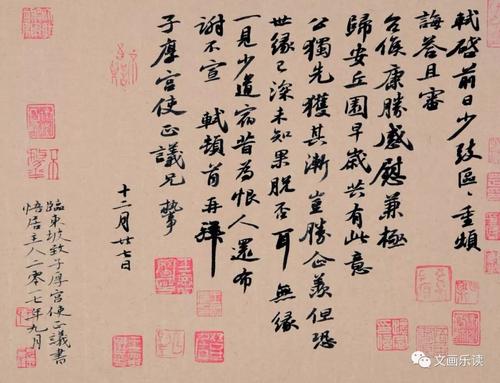 軾啓前日少致區、重煩
誨答且審
台候康勝感慰兼極
歸安丘園早歲共有此意
公獨先獲其漸豈勝企羨但恐
世緣已深未知果脫否耳無緣
一見少道宿昔為恨人還布
謝不宣 軾頓首再拜
子厚宮使正議兄執事
十二月廿七日
臨東坡致子厚宮使正議書
悟居主人二零一七年九月
文画乐读